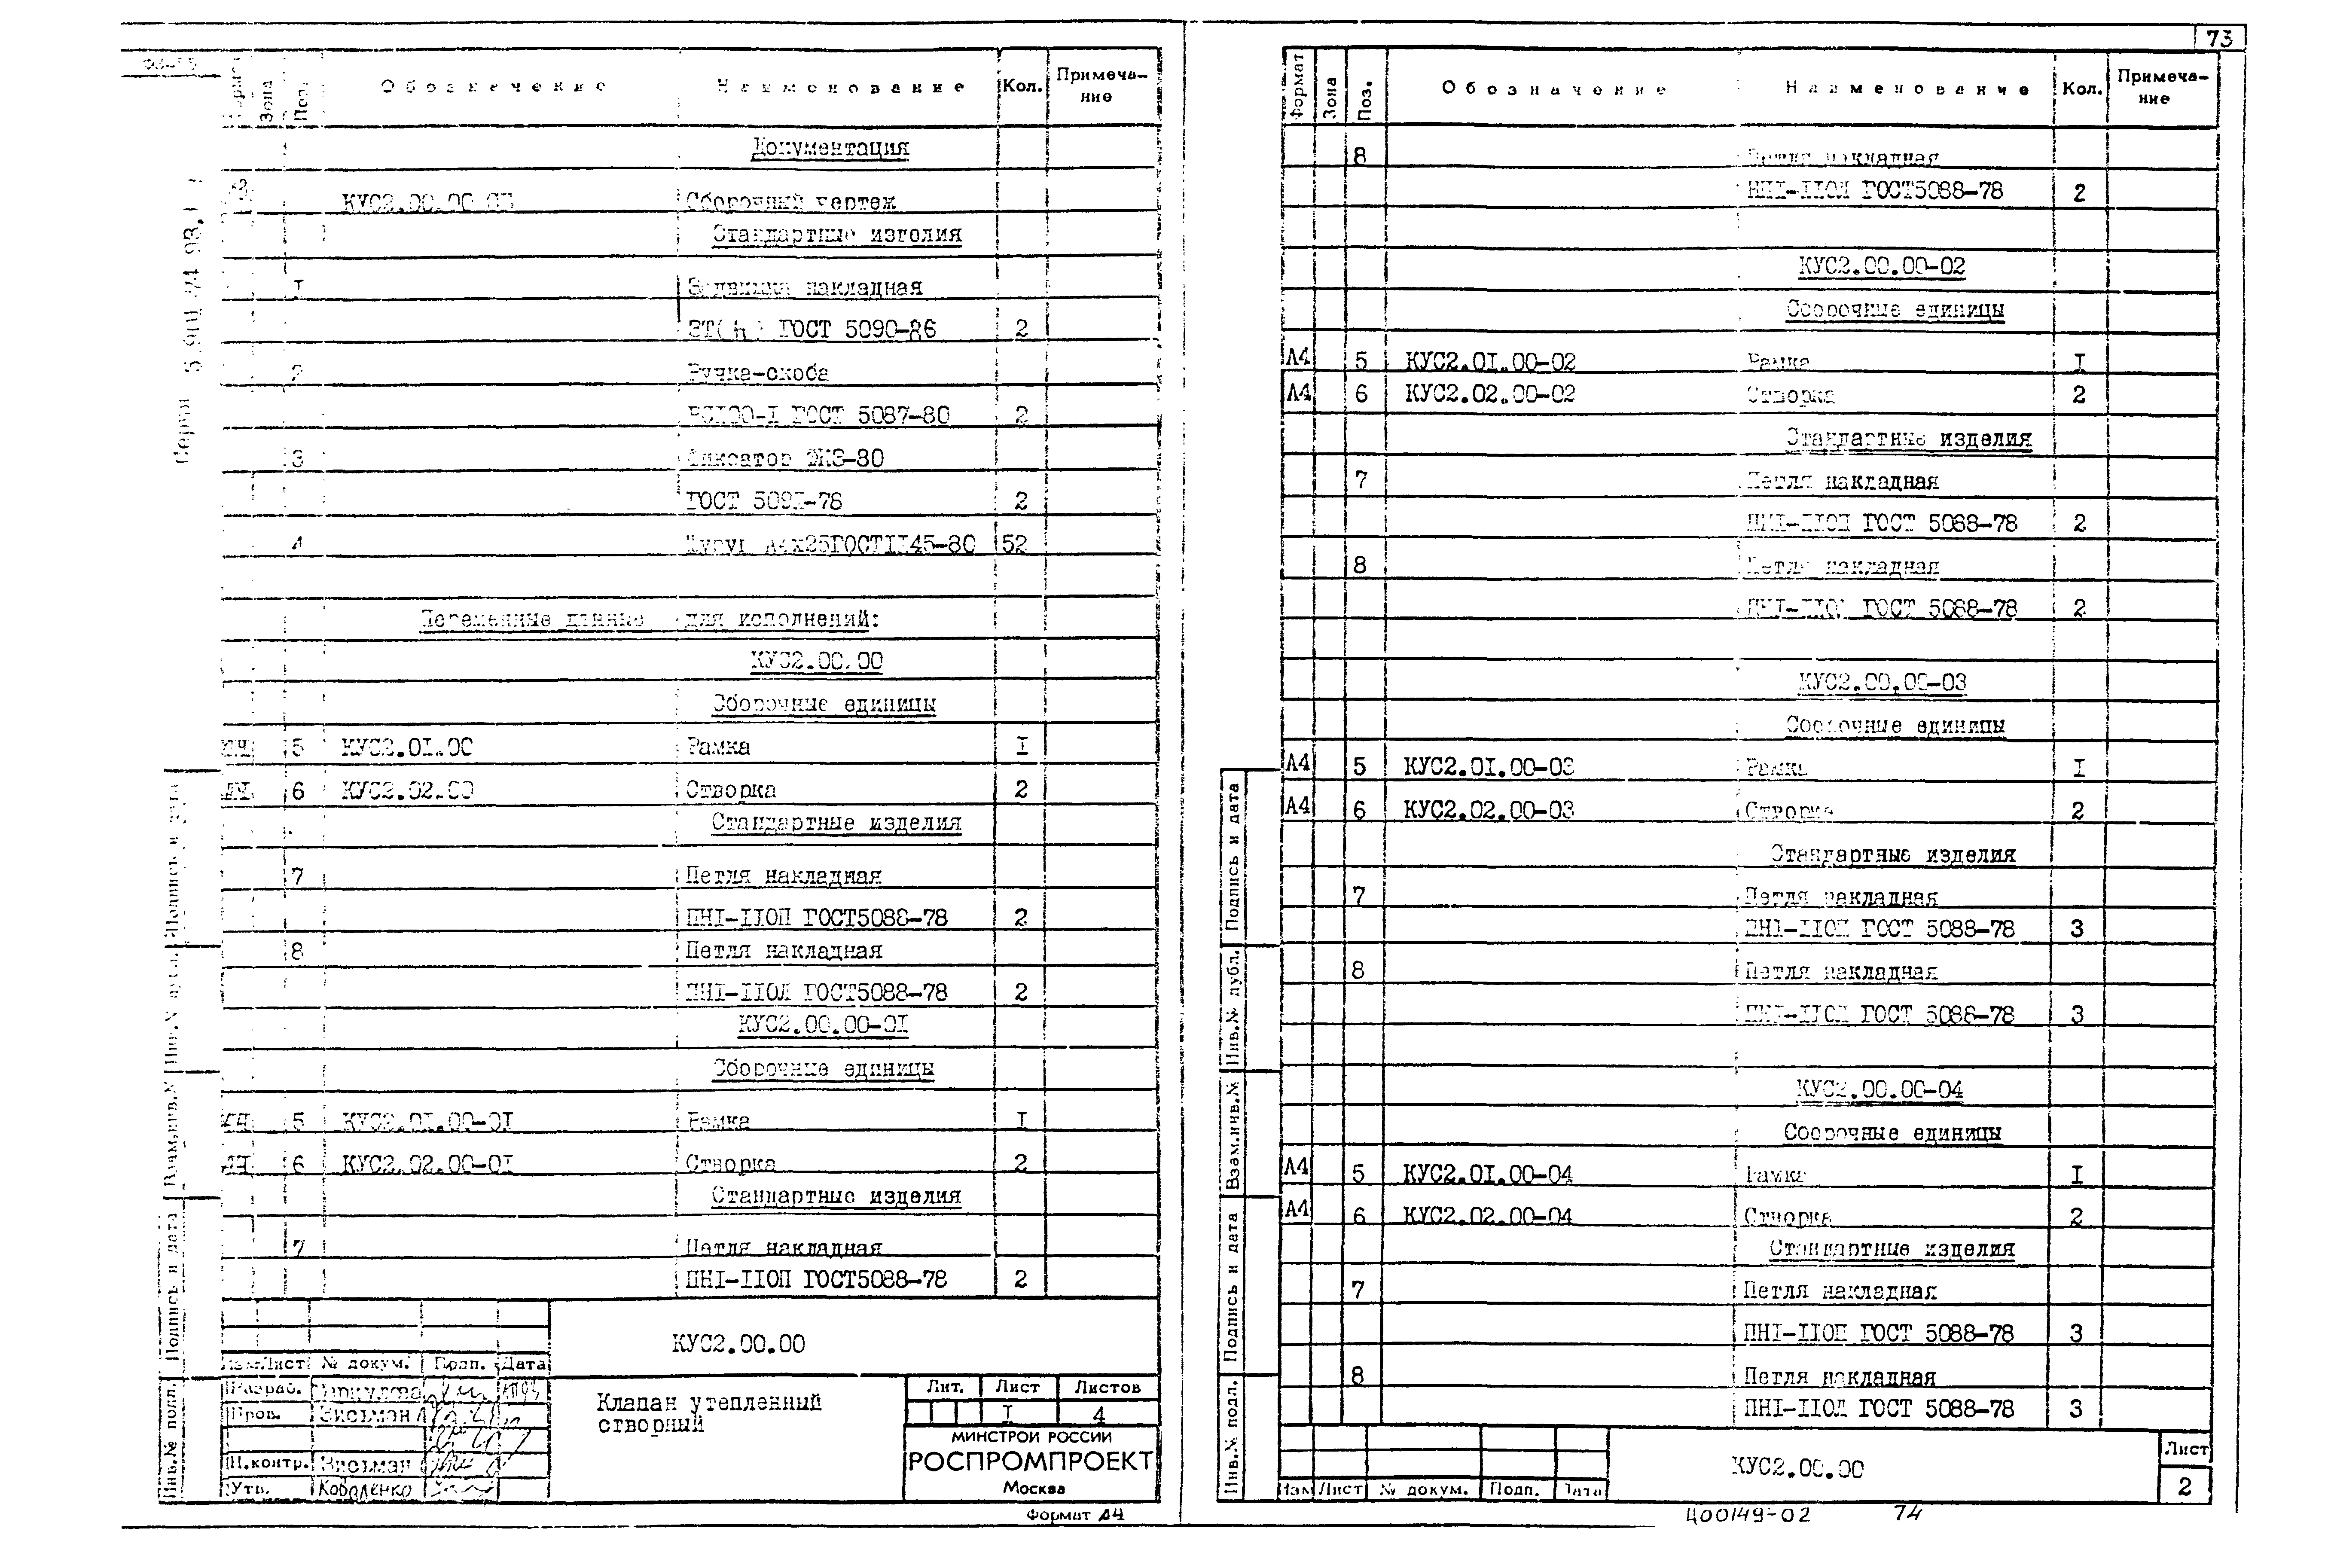 73
Формат Зона Поз. Обозначение Наименование Кол. Примечание
Документация
КУС2.00.00 Сборочный чертеж
Стандартные изделия
I Задвижка накладная
ЗТ ГОСТ 5090-86 2
2 Ручка-скоба
РС100-I ГОСТ 5087-80 2
3 Фиксатор ФК3-80
ГОСТ 509I-78 2
4 Шуруп А4х25ГОСТII45-80 52
Переменные данные для исполнений:
КУС2.00.00
Сборочные единицы
5 КУС2.0I.00 Рамка I
6 КУС2.02.00 Створка 2
Стандартные изделия
7 Петля накладная
ПНI-IIОП ГОСТ5088-78 2
8 Петля накладная
ПНI-IIОЛ ГОСТ5088-78 2
КУС2.00.00-0I
Сборочные единицы
5 КУС2.0I.00-0I Рамка I
6 КУС2.02.00-0I Створка 2
Стандартные изделия
7 Петля накладная
ПНI-IIОП ГОСТ5088-78 2
КУС2.00.00
Изм Лист № докум. Подп. Дата
Разраб.
Пров. Висьман
Н.контр. Висьман
Утв. Коваленко
Клапан утепленный
створный
Лит. Лист Листов
I 4
МИНСТРОЙ РОССИИ
РОСПРОМПРОЕКТ
Москва
Формат А4
Серия
Подпись и дата
Инв.№ дубл.
Взам.инв.№
Подпись и дата
Инв.№ подл.
Формат Зона Поз. Обозначение Наименование Кол. Примечание
8 Петля накладная
ПНI-IIОЛ ГОСТ5088-78 2
КУС2.00.00-02
Сборочные единицы
А4 5 КУС2.0I.00-02 Рамка I
А4 6 КУС2.02.00-02 Створка 2
Стандартные изделия
7 Петля накладная
ПНI-IIОП ГОСТ 5088-78 2
8 Петля накладная
ПНI-IIОЛ ГОСТ 5088-78 2
КУС2.00.00-03
Сборочные единицы
А4 5 КУС2.0I.00-03 Рамка I
А4 6 КУС2.02.00-03 Створка 2
Стандартные изделия
7 Петля накладная
ПНI-IIОП ГОСТ 5088-78 3
8 Петля накладная
ПНI-IIОЛ ГОСТ 5088-78 3
КУС2.00.00-04
Сборочные единицы
А4 5 КУС2.0I.00-04 Рамка I
А4 6 КУС2.02.00-04 Створка 2
Стандартные изделия
7 Петля накладная
ПНI-IIОП ГОСТ 5088-78 3
8 Петля накладная
ПНI-IIОЛ ГОСТ 5088-78 3
Изм Лист № докум. Подп. Дата
КУС2.00.00
Лист
2
Подпись и дата
Инв.№ дубл.
Взам.инв.№
Подпись и дата
Инв.№ подл.
Ц00149-02 74